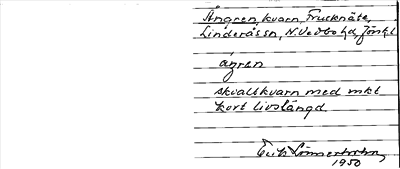 Ångren, kvarn, Frucknäte,
Linderåssn, N. Vedbo hd, Jönkl
ångren
skvaltkvarn med mkt
kort livslängd
Erik Linnerholm,
1950